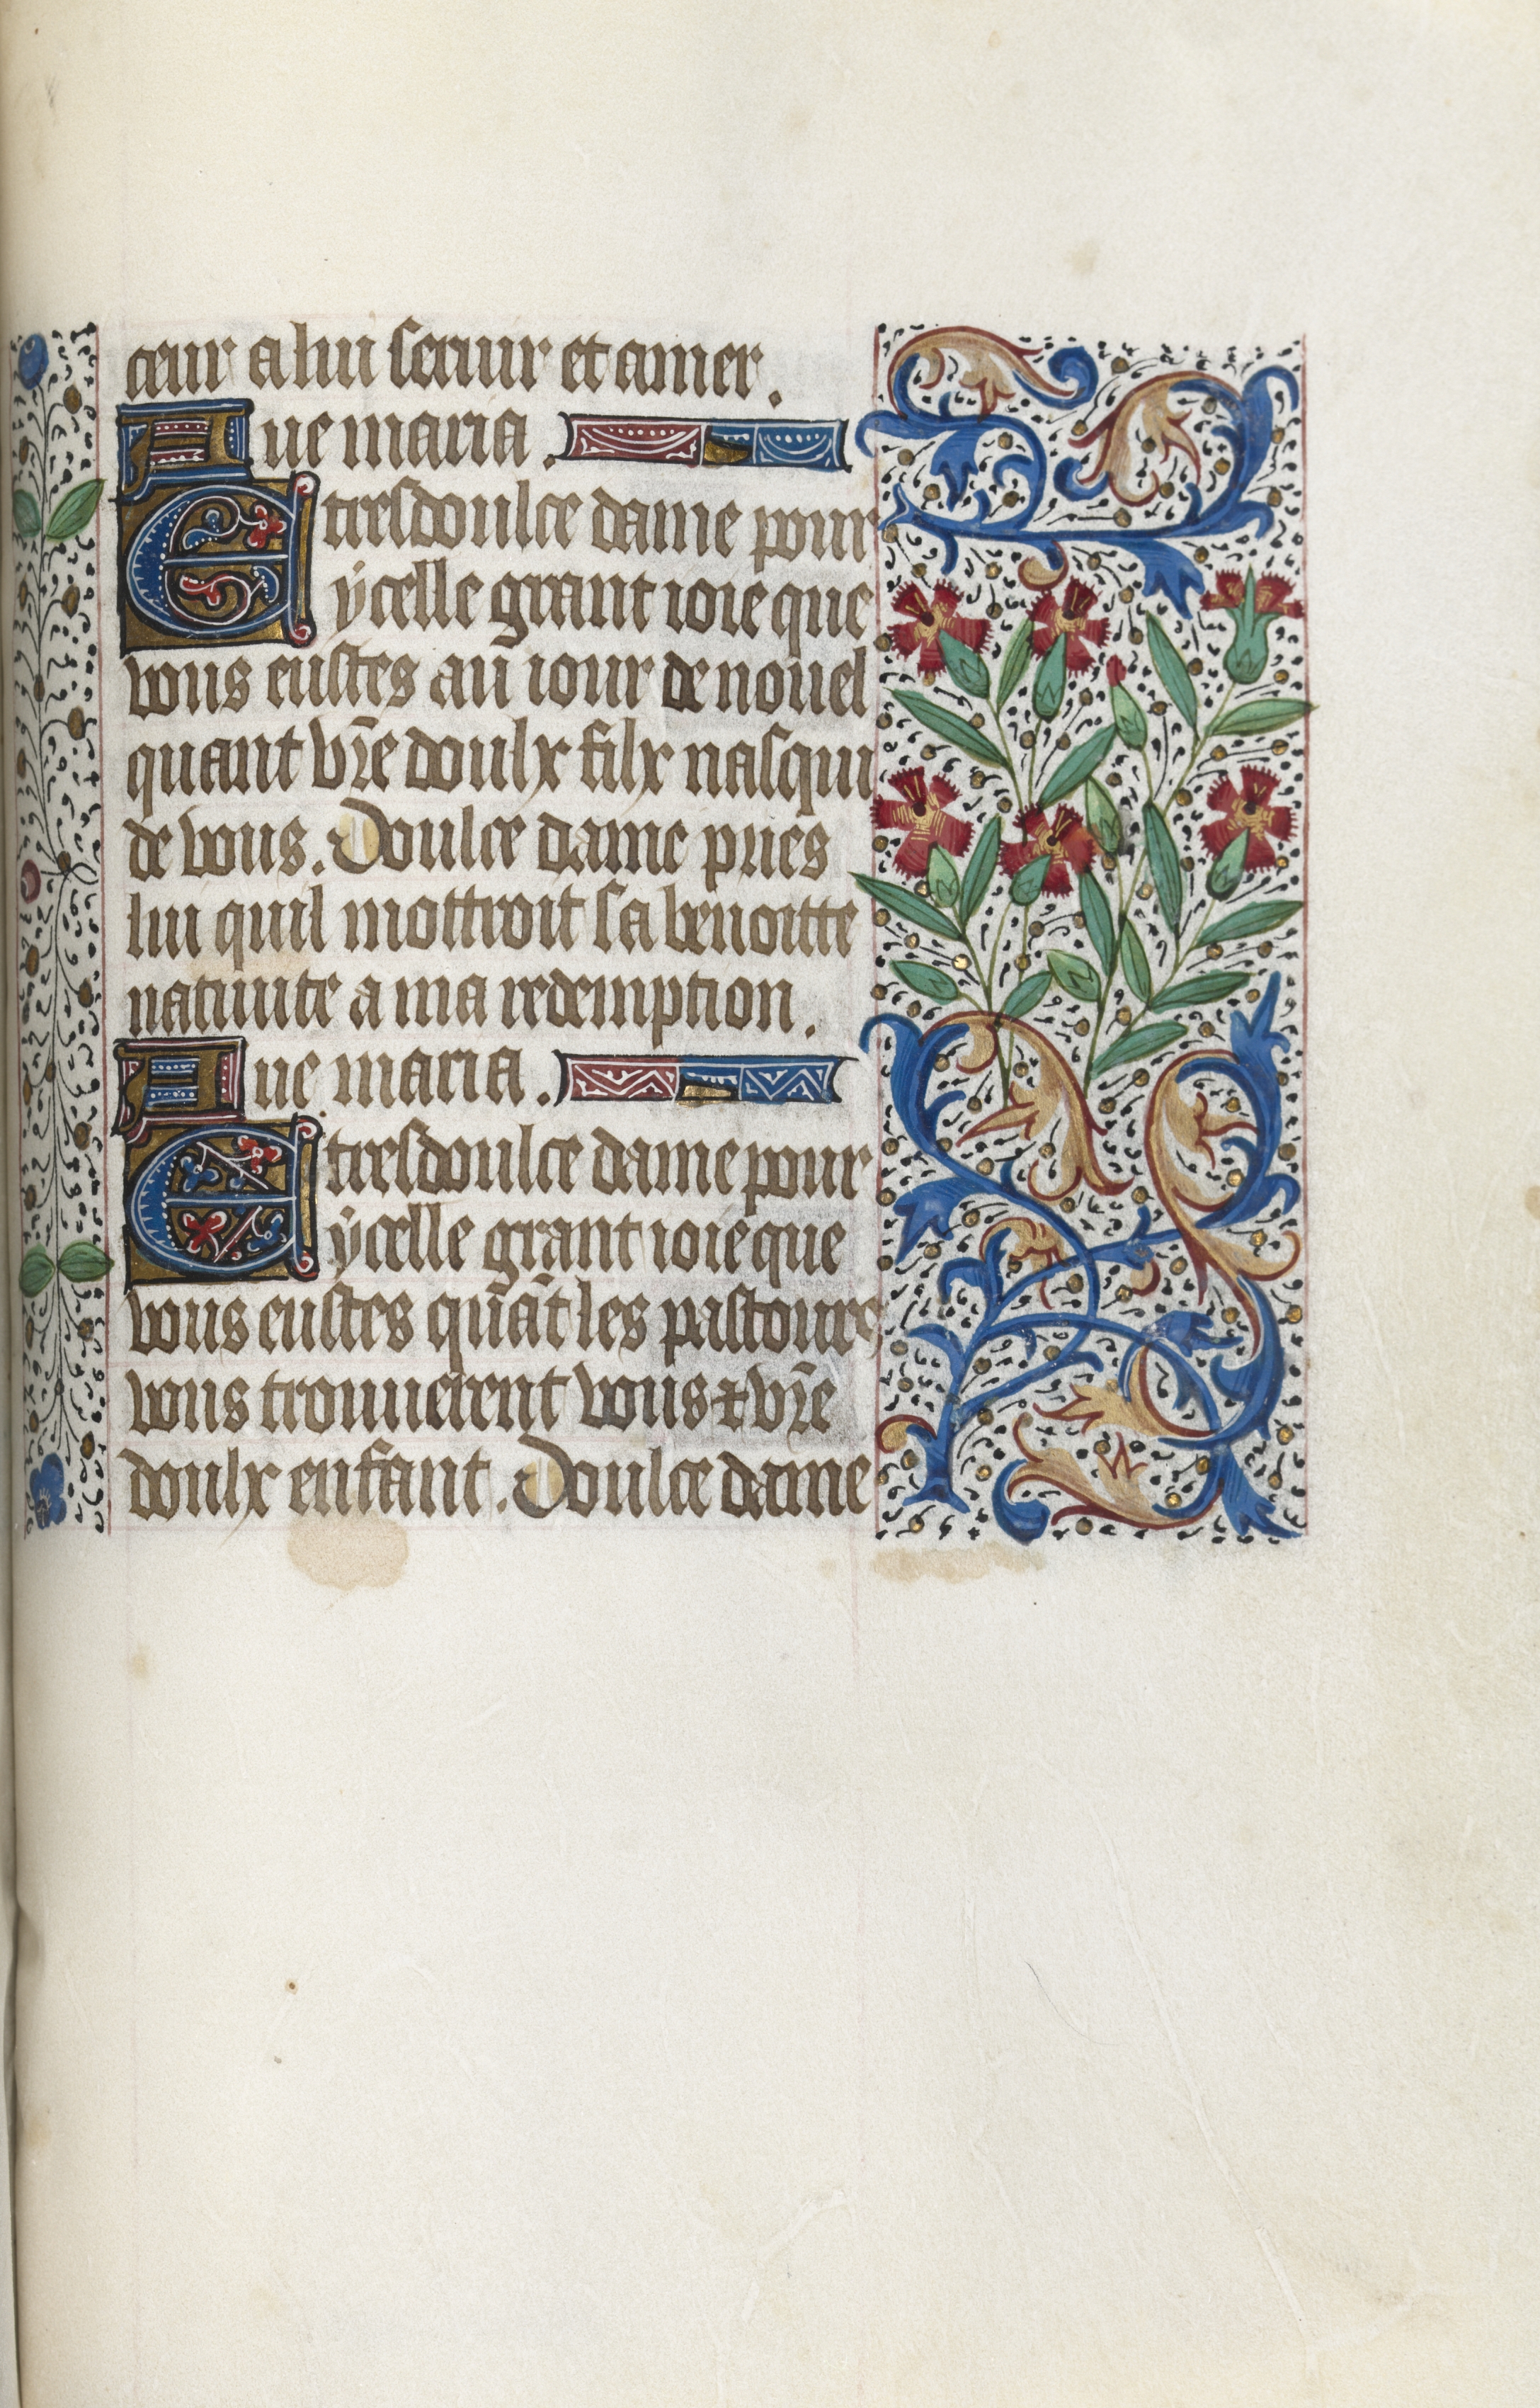 cœur a lui seruir et amer.
Aue maria.
E tresdoulce dame pour
ycelle grant ioie que
vous eustes au iour de nouel
quant vr̄e doulx filx nasqui
de vous. Doulce dame pries
lui quil mottroit sa benoitte
natiuite a ma redemption.
Aue maria.
E tresdoulce dame pour
ycelle grant ioie que
vous eustes qūāt les pastoure
vous trouuerent vous ⁊ vr̄e
doulx enfant. Doulce dame